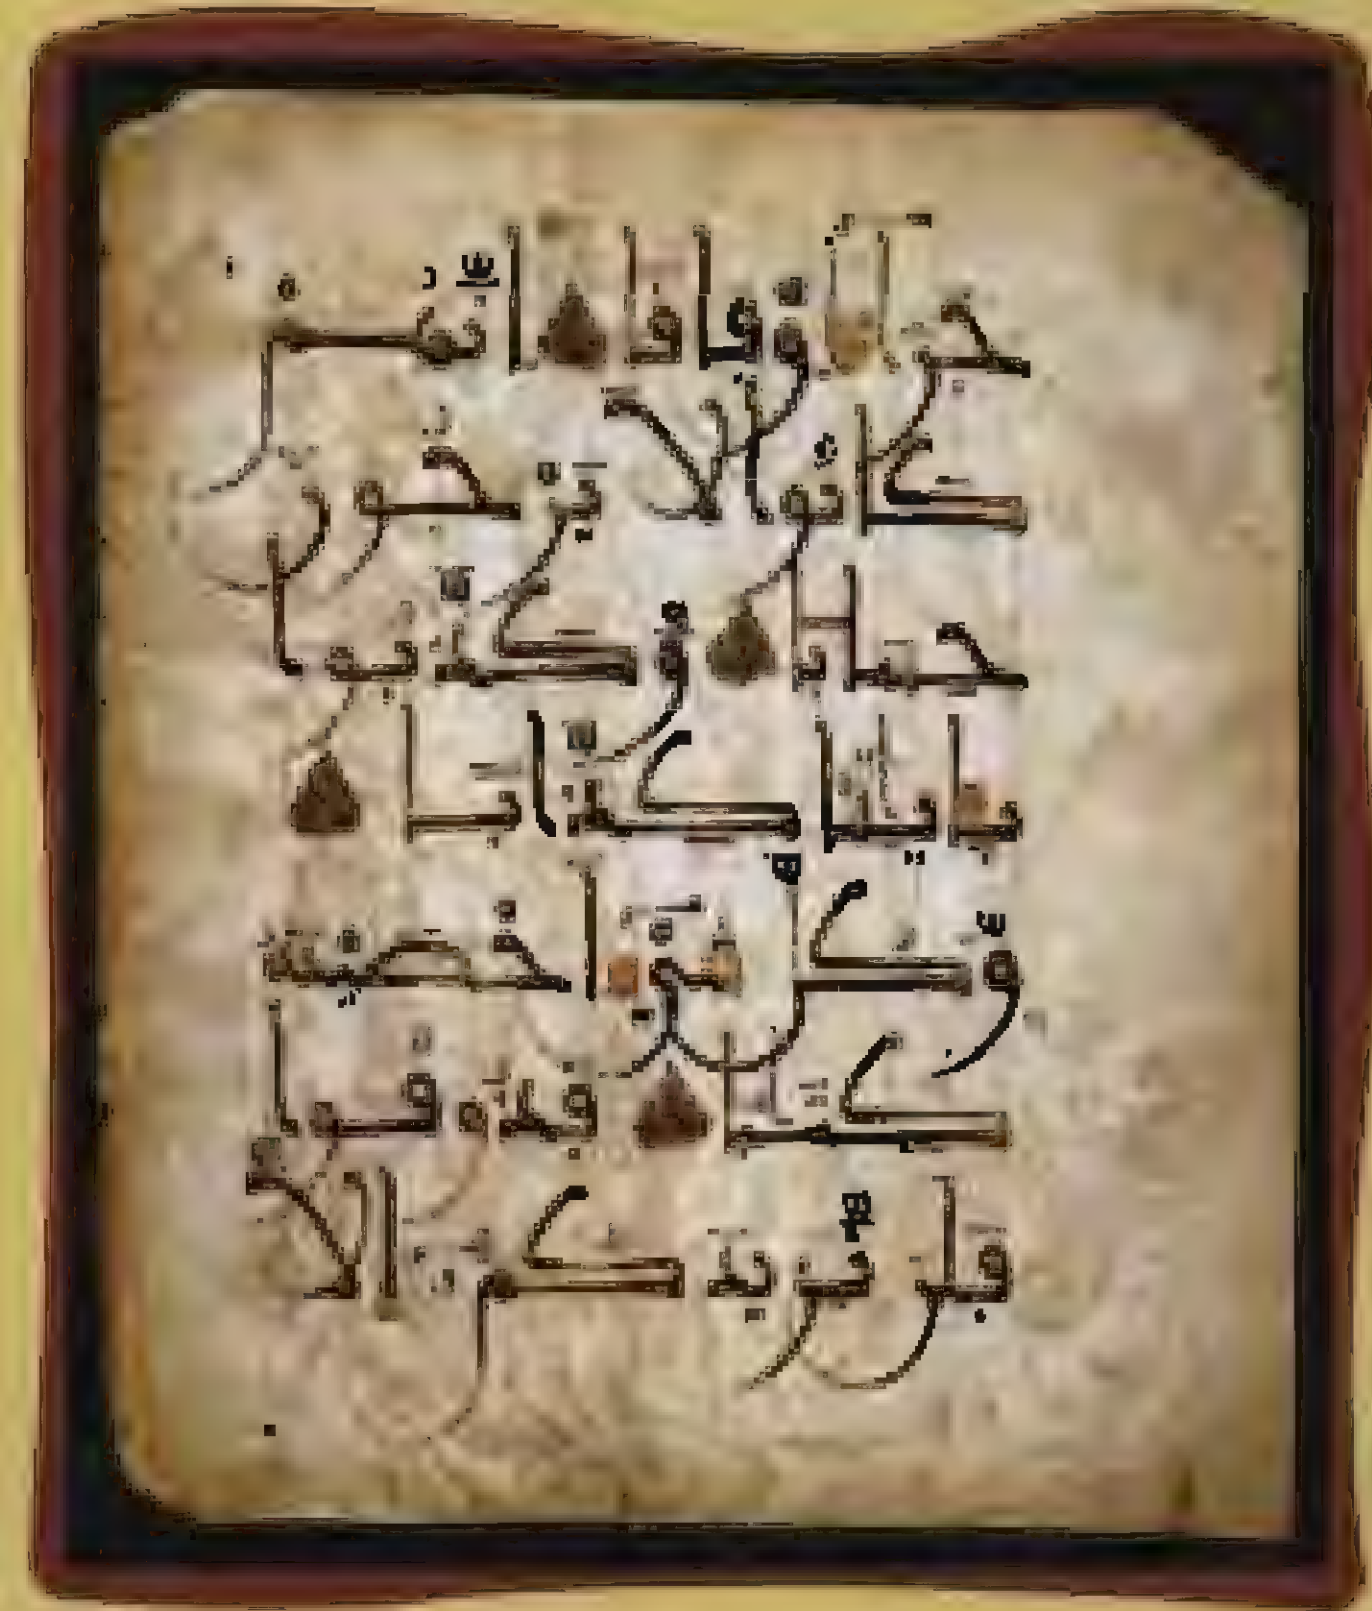 جزا وفاقا انهم
كانوا لا يرجون
حسابا وكذبوا
باياتنا كذابا
وكل شي احصينه
كتبا فذوقوا
فلن نزيدكم الا